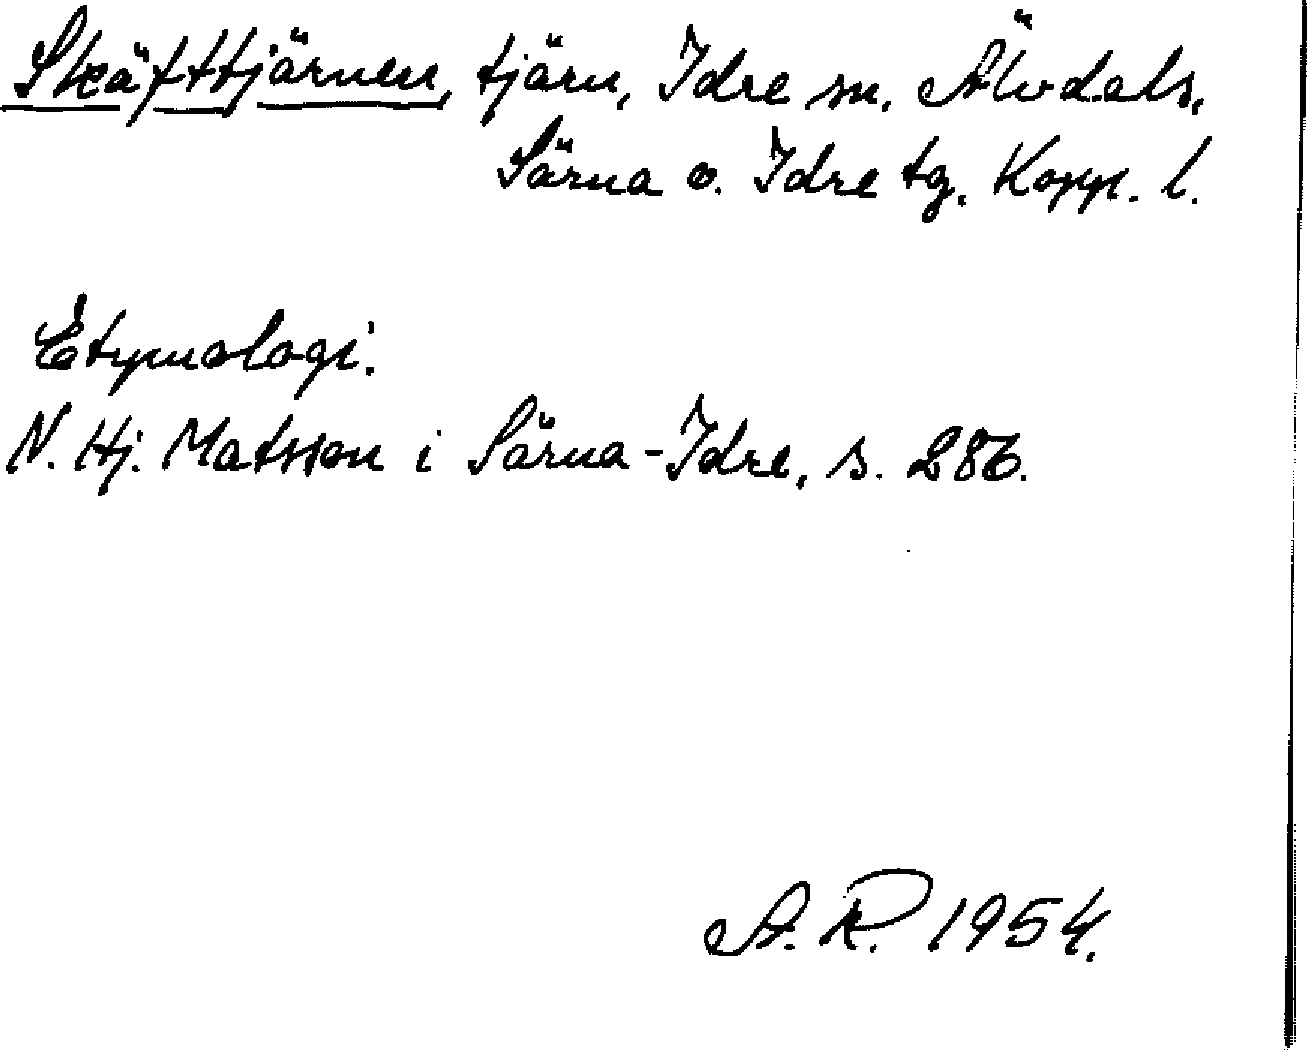 Skäfttjärnen, tjärn, Idre sn. Älvdals,
Särna o. Idre tg, Kopp. l.
Etymologi:
N. Hj. Matsson i Särna-Idre, s. 286.
A. R. 1954.